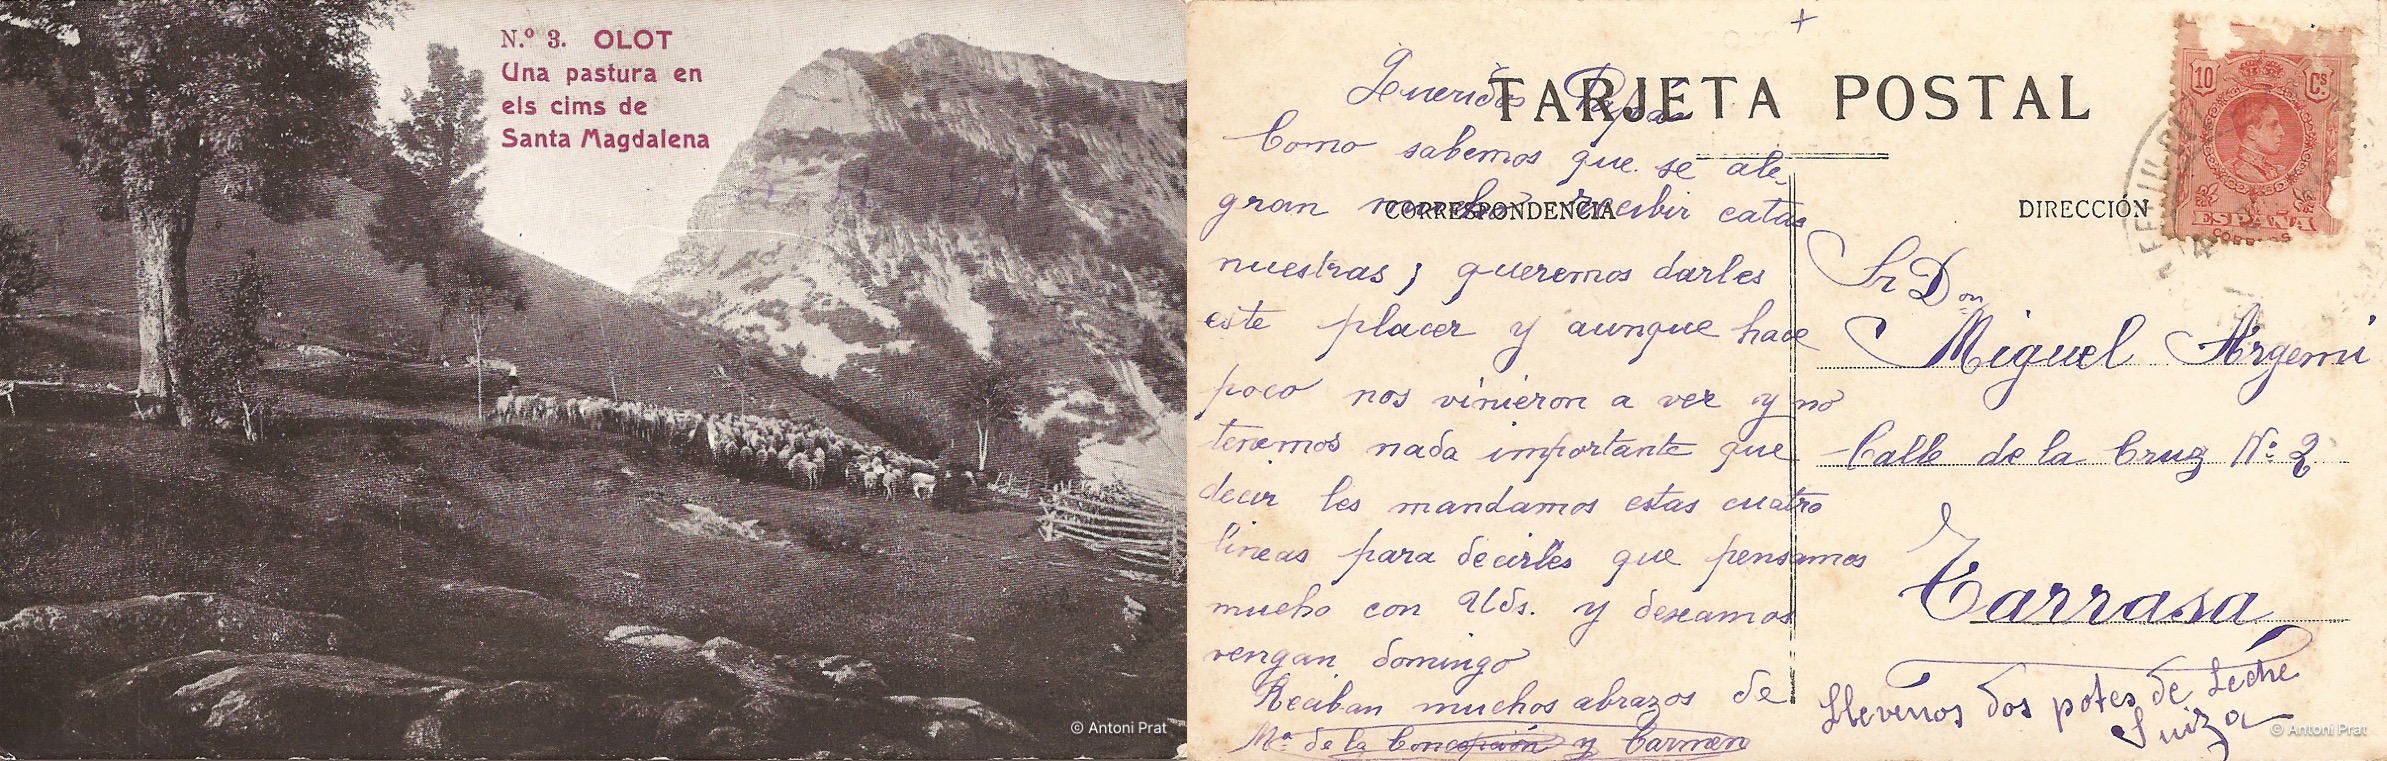 N.º 3. OLOT
Una pastura en
els cims de
Santa Magdalena
© Antoni Prat
+
TARJETA POSTAL
CORRESPONDENCIA
DIRECCIÓN
Queridos Papás
Como sabemos que se ale-
gran mucho recibir cartas
nuestras, queremos darles
este placer y aunque hace
poco nos vinieron a ver y no
tenemos nada importante que
decir les mandamos estas cuatro
lineas para decirles que pensamos
mucho con Uds. y deseamos
vengan domingo
Reciban muchos abrazos de
Mª de la Concepción y Carmen
10 Cs
ESPAÑA
CORREOS
Sr Don
Miguel Argemi
Calle de la Cruz Nº 2
Tarrasa
Llevenos dos potes de Leche
Suiza
© Antoni Prat